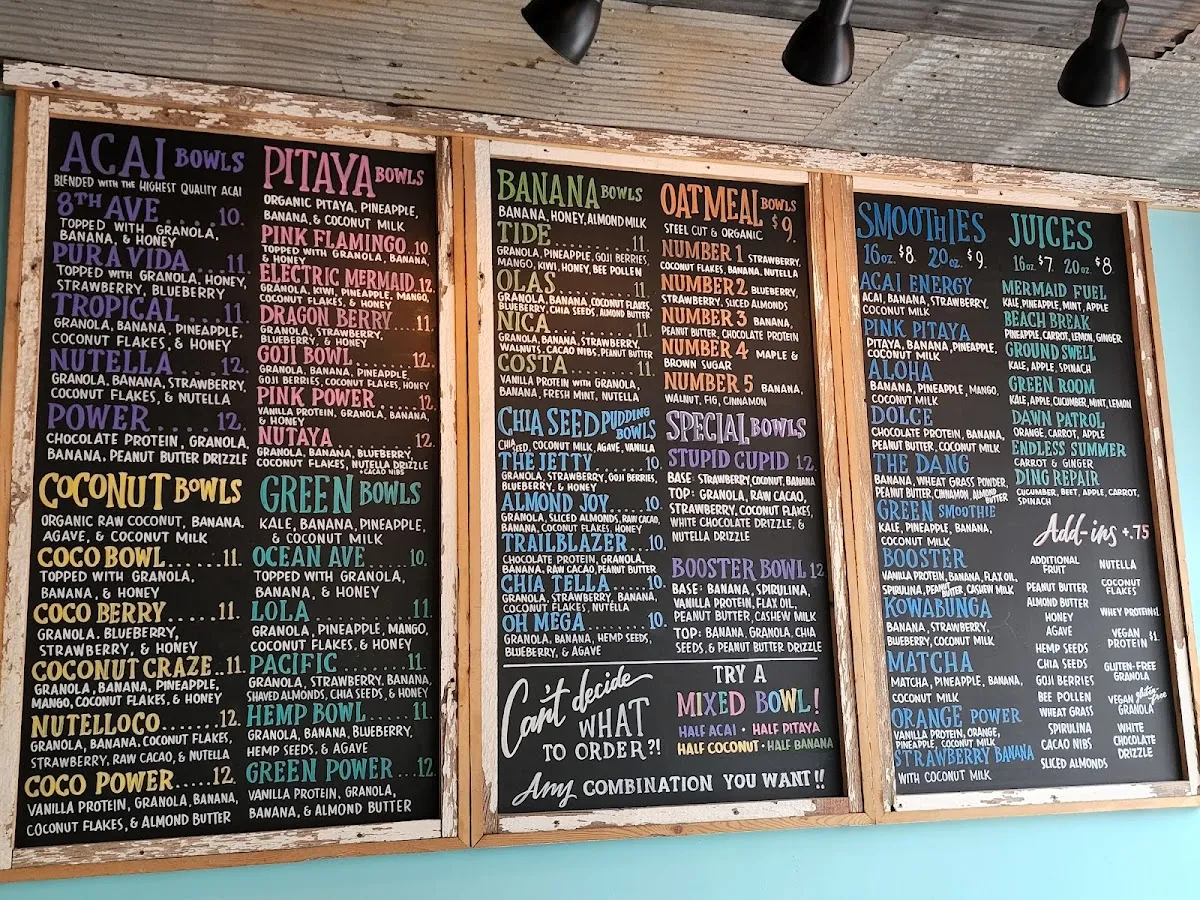 ACAI BOWLS
BLENDED WITH THE HIGHEST QUALITY ACAI
8TH AVE....10.
TOPPED WITH GRANOLA,
BANANA, & HONEY
PURA VIDA...11.
TOPPED WITH GRANOLA, HONEY,
STRAWBERRY, BLUEBERRY
TROPICAL...11.
GRANOLA, BANANA, PINEAPPLE,
COCONUT FLAKES, & HONEY
NUTELLA....12.
GRANOLA, BANANA, STRAWBERRY,
COCONUT FLAKES, & NUTELLA
POWER....12.
CHOCOLATE PROTEIN, GRANOLA,
BANANA, PEANUT BUTTER DRIZZLE
COCONUT BOWLS
ORGANIC RAW COCONUT, BANANA,
AGAVE, & COCONUT MILK
COCO BOWL......11.
TOPPED WITH GRANOLA,
BANANA, & HONEY
COCO BERRY......11.
GRANOLA. BLUEBERRY,
STRAWBERRY, & HONEY
COCONUT CRAZE..11.
GRANOLA, BANANA, PINEAPPLE,
MANGO, COCONUT FLAKES, & HONEY
NUTELLOCO......12.
GRANOLA, BANANA, COCONUT FLAKES,
STRAWBERRY, RAW CACAO, & NUTELLA
COCO POWER.....12.
VANILLA PROTEIN, GRANOLA, BANANA,
COCONUT FLAKES, & ALMOND BUTTER
PITAYA BOWLS
ORGANIC PITAYA, PINEAPPLE,
BANANA, & COCONUT MILK
PINK FLAMINGO..10.
TOPPED WITH GRANOLA, BANANA,
& HONEY
ELECTRIC MERMAID.12.
GRANOLA, KIWI, PINEAPPLE, MANGO,
COCONUT FLAKES, & HONEY
DRAGON BERRY...11.
GRANOLA, STRAWBERRY,
BLUEBERRY, & HONEY
GOJI BOWL.....12.
GRANOLA, BANANA, PINEAPPLE,
GOJI BERRIES, COCONUT FLAKES, HONEY
PINK POWER....12.
VANILLA PROTEIN, GRANOLA, BANANA,
& HONEY
NUTAYA........12.
GRANOLA, BANANA, BLUEBERRY,
COCONUT FLAKES, NUTELLA DRIZZLE
+CACAO NIBS
GREEN BOWLS
KALE, BANANA, PINEAPPLE,
& COCONUT MILK
OCEAN AVE....10.
TOPPED WITH GRANOLA,
BANANA, & HONEY
LOLA..........11.
GRANOLA, PINEAPPLE, MANGO,
COCONUT FLAKES, & HONEY
PACIFIC.......11.
GRANOLA, STRAWBERRY, BANANA,
SHAVED ALMONDS, CHIA SEEDS, & HONEY
HEMP BOWL.....11.
GRANOLA, BANANA, BLUEBERRY,
HEMP SEEDS, & AGAVE
GREEN POWER...12.
VANILLA PROTEIN, GRANOLA,
BANANA, & ALMOND BUTTER
BANANA BOWLS
BANANA, HONEY, ALMOND MILK
TIDE..........11.
GRANOLA, PINEAPPLE, GOJI BERRIES,
MANGO, KIWI, HONEY, BEE POLLEN
OLAS..........11.
GRANOLA, BANANA, COCONUT FLAKES,
BLUEBERRY, CHIA SEEDS, ALMOND BUTTER
NICA..........11.
GRANOLA, BANANA, STRAWBERRY,
WALNUTS, CACAO NIBS, PEANUT BUTTER
COSTA.........11.
VANILLA PROTEIN WITH GRANOLA,
BANANA, FRESH MINT, NUTELLA
CHIA SEED PUDDING BOWLS
CHIA SEED, COCONUT MILK, AGAVE, VANILLA
THE JETTY.......10.
GRANOLA, STRAWBERRY, GOJI BERRIES,
BLUEBERRY, & HONEY
ALMOND JOY.....10.
GRANOLA, SLICED ALMONDS, RAW CACAO,
BANANA, COCONUT FLAKES, HONEY
TRAILBLAZER...10.
CHOCOLATE PROTEIN, GRANOLA,
BANANA, RAW CACAO, PEANUT BUTTER
CHIA TELLA.....10.
GRANOLA, STRAWBERRY, BANANA,
COCONUT FLAKES, NUTELLA
OH MEGA.......10.
GRANOLA, BANANA, HEMP SEEDS,
BLUEBERRY, & AGAVE
OATMEAL BOWLS
STEEL CUT & ORGANIC $9.
NUMBER 1 STRAWBERRY,
COCONUT FLAKES, BANANA, NUTELLA
NUMBER 2 BLUEBERRY,
STRAWBERRY, SLICED ALMONDS
NUMBER 3 BANANA,
PEANUT BUTTER, CHOCOLATE PROTEIN
NUMBER 4 MAPLE &
BROWN SUGAR
NUMBER 5 BANANA,
WALNUT, FIG, CINNAMON
SPECIAL BOWLS
STUPID CUPID 12.
BASE: STRAWBERRY, COCONUT, BANANA
TOP: GRANOLA, RAW CACAO,
STRAWBERRY, COCONUT FLAKES,
WHITE CHOCOLATE DRIZZLE, &
NUTELLA DRIZZLE
BOOSTER BOWL 12
BASE: BANANA, SPIRULINA,
VANILLA PROTEIN, FLAX OIL,
PEANUT BUTTER, CASHEW MILK
TOP: BANANA, GRANOLA, CHIA
SEEDS, & PEANUT BUTTER DRIZZLE
Can't decide
WHAT
TO ORDER?!
TRY A
MIXED BOWL!
HALF ACAI • HALF PITAYA
HALF COCONUT • HALF BANANA
Any COMBINATION YOU WANT!!
SMOOTHIES
16oz. $8. 20oz. $9.
ACAI ENERGY
ACAI, BANANA, STRAWBERRY,
COCONUT MILK
PINK PITAYA
PITAYA, BANANA, PINEAPPLE,
COCONUT MILK
ALOHA
BANANA, PINEAPPLE, MANGO,
COCONUT MILK
DOLCE
CHOCOLATE PROTEIN, BANANA,
PEANUT BUTTER, COCONUT MILK
THE DANG
BANANA, WHEAT GRASS POWDER,
PEANUT BUTTER, CINNAMON, ALMOND BUTTER
GREEN SMOOTHIE
KALE, PINEAPPLE, BANANA,
COCONUT MILK
BOOSTER
VANILLA PROTEIN, BANANA, FLAX OIL,
SPIRULINA, PEANUT BUTTER, CASHEW MILK
KOWABUNGA
BANANA, STRAWBERRY,
BLUEBERRY, COCONUT MILK
MATCHA
MATCHA, PINEAPPLE, BANANA,
COCONUT MILK
ORANGE POWER
VANILLA PROTEIN, ORANGE,
PINEAPPLE, COCONUT MILK
STRAWBERRY BANANA
WITH COCONUT MILK
JUICES
16oz. $7 20oz. $8
MERMAID FUEL
KALE, PINEAPPLE, MINT, APPLE
BEACH BREAK
PINEAPPLE, CARROT, LEMON, GINGER
GROUND SWELL
KALE, APPLE, SPINACH
GREEN ROOM
KALE, APPLE, CUCUMBER, MINT, LEMON
DAWN PATROL
ORANGE, CARROT, APPLE
ENDLESS SUMMER
CARROT & GINGER
DING REPAIR
CUCUMBER, BEET, APPLE, CARROT,
SPINACH
Add-ins +.75
ADDITIONAL
FRUIT
PEANUT BUTTER
ALMOND BUTTER
HONEY
AGAVE
HEMP SEEDS
CHIA SEEDS
GOJI BERRIES
BEE POLLEN
WHEAT GRASS
SPIRULINA
CACAO NIBS
SLICED ALMONDS
NUTELLA
COCONUT
FLAKES
WHEY PROTEIN $1.
VEGAN
PROTEIN $1.
GLUTEN-FREE
GRANOLA
VEGAN gluten-free
GRANOLA
WHITE
CHOCOLATE
DRIZZLE